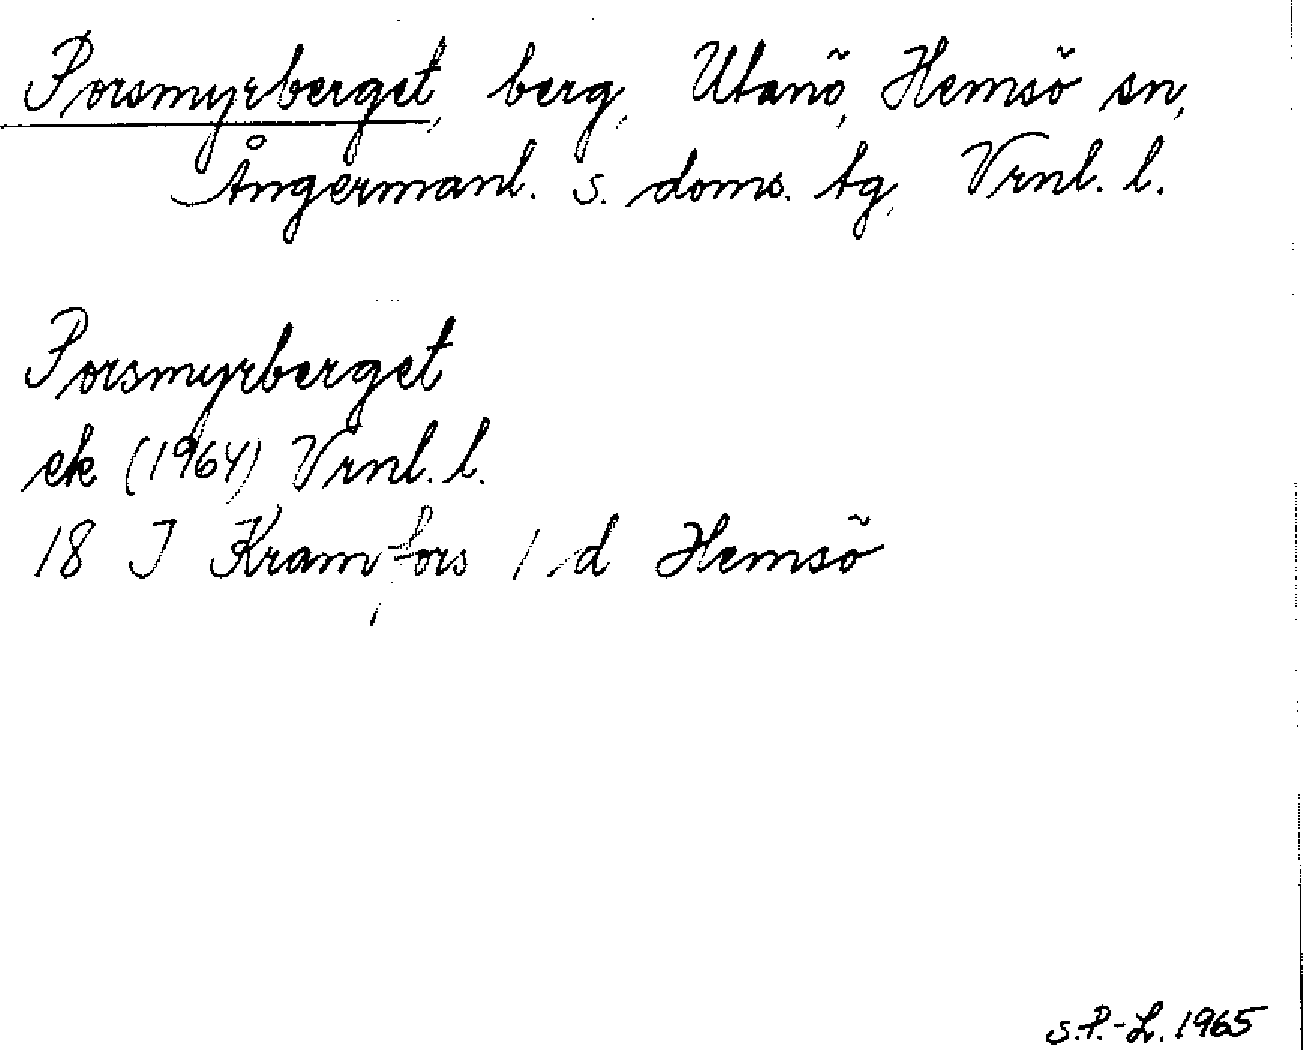 Porsmyrberget, berg, Utanö, Hemsö sn,
Ångermanl. s. doms. tg, Vrnl. l.
Porsmyrberget
ek (1964) Vrnl. l.
18 I Kramfors 1 d Hemsö
S.P.-L. 1965